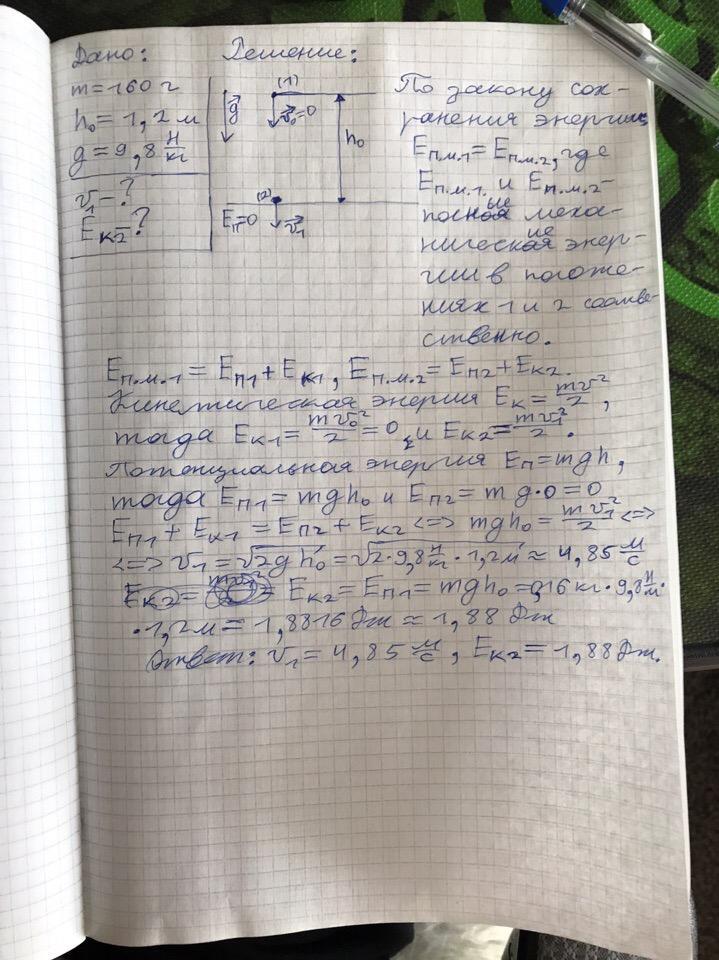 Дано:
m=160 г
h₀=1,2 м
g=9,8 Н/кг
v₁-?
Eк2-?
Решение:
(1)
g⃗
v⃗₀=0
h₀
(2)
Eп=0
v⃗₁
По закону сох-
ранения энергии
Eп.м.1=Eп.м.2, где
Eп.м.1. и Eп.м.2-
полные меха-
нические энер-
гии в положе-
ниях 1 и 2 соотве-
ственно.
Eп.м.1 = Eп1 + Eк1, Eп.м.2 = Eп2 + Eк2.
Кинетическая энергия Eк = mv²/2,
тогда Eк1 = mv₀²/2 = 0, и Eк2 = mv₁²/2.
Потенциальная энергия Eп=mgh,
тогда Eп1 = mgh₀ и Eп2 = mg·0=0
Eп1 + Eк1 = Eп2 + Eк2 <=> mgh₀ = mv₁²/2 <=>
<=> v₁ = √2gh₀ = √2·9,8 Н/кг·1,2м ≈ 4,85 м/с
Eк2 = Eк2 = Eп1 = mgh₀ = 0,16 кг·9,8 Н/м·
·1,2м = 1,8816 Дж ≈ 1,88 Дж
Ответ: v₁ = 4,85 м/с, Eк2 = 1,88 Дж.